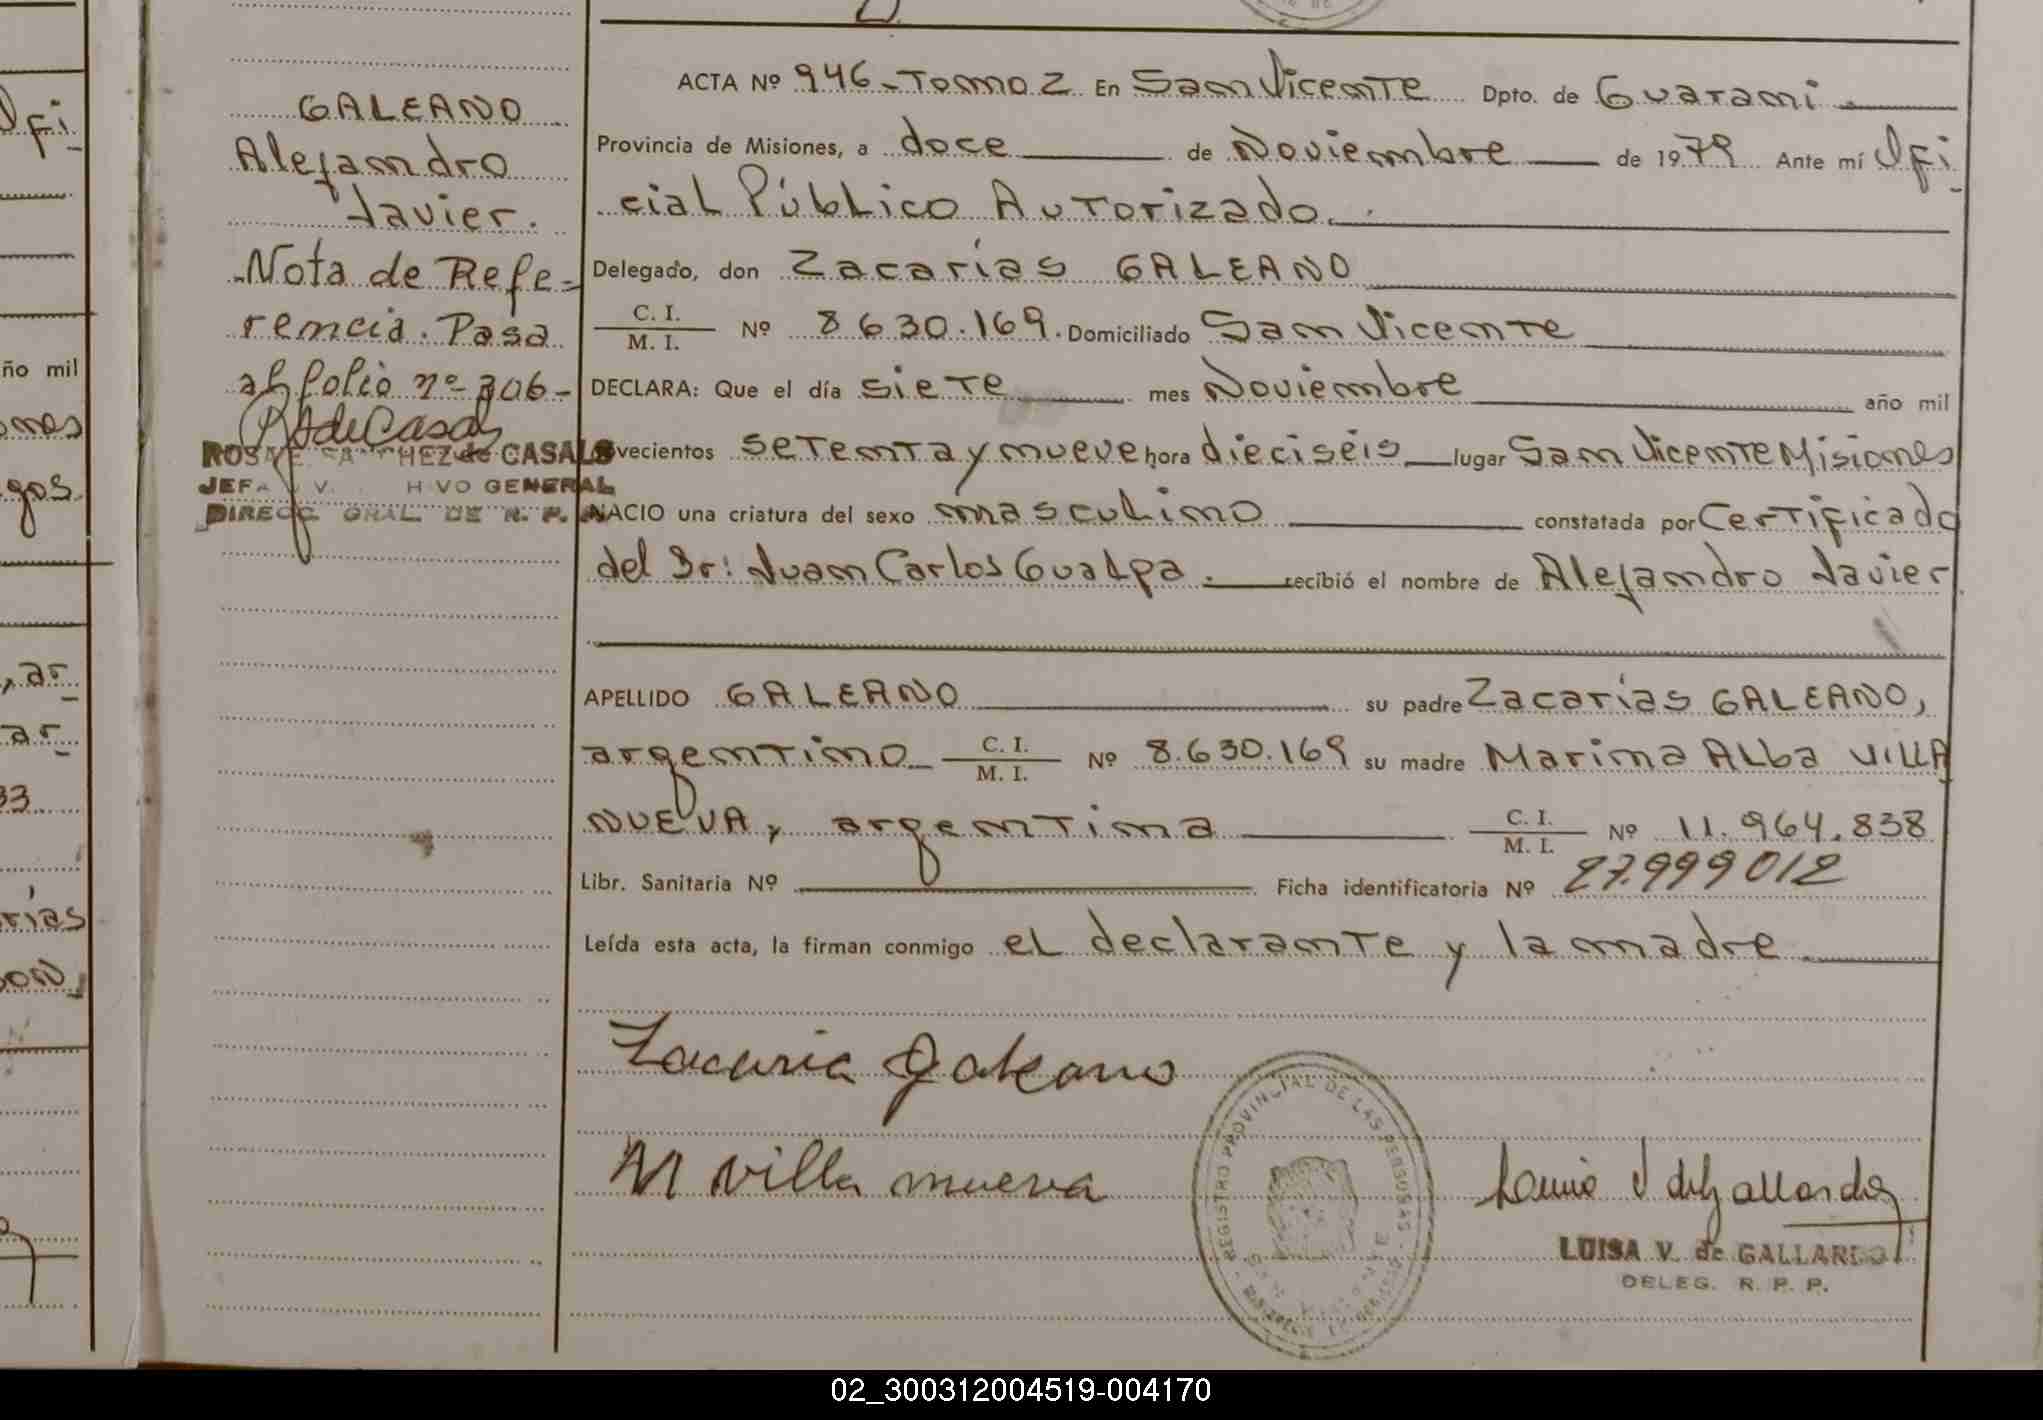 GALEANO
Alejandro
Javier.
Nota de Refe-
rencia. Pasa
al folio nº 306-
RSdeCasals
ROSA E. SANCHEZ de CASALS
JEFA HIVO GENERAL
DIRECC. GRAL. DE R. P.
ACTA Nº 946-Tomo 2 En San Vicente Dpto. de Guarani
Provincia de Misiones, a doce de Noviembre de 1979 Ante mí Ofi
cial Público Autorizado.
Delegado, don Zacarías GALEANO
C. I. / M. I. Nº 8.630.169. Domiciliado San Vicente
DECLARA: Que el día siete mes Noviembre año mil
vecientos setenta y nueve hora dieciséis lugar San Vicente Misiones
NACIO una criatura del sexo masculino constatada por Certificado
del Dr: Juan Carlos Gualpa. recibió el nombre de Alejandro Javier
APELLIDO GALEANO su padre Zacarías GALEANO,
argentino C. I. / M. I. Nº 8.630.169 su madre Marina Alba VILLA
NUEVA, argentina C. I. / M. I. Nº 11.964.838
Libr. Sanitaria Nº Ficha identificatoria Nº 27.999012
Leída esta acta, la firman conmigo el declarante y la madre
Zacaria Galeano
M Villa nueva
REGISTRO PROVINCIAL DE LAS PERSONAS
Luisa V de Gallardo
LUISA V. de GALLARDO
DELEG. R. P. P.
02_300312004519-004170